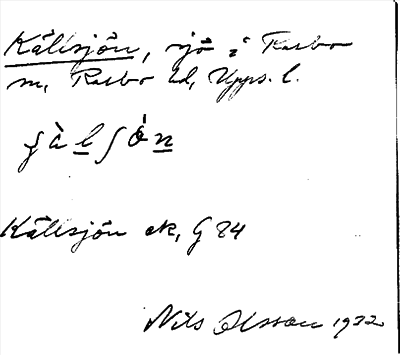 Källsjön, sjö i Rasbo
sn, Rasbo hd, Upps. l.
Källsjön ek, G 84
Nils Olsson 1932